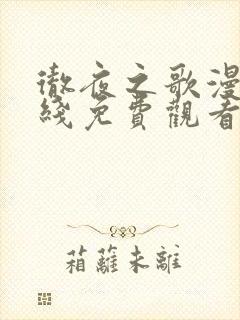 徹夜之歌漫
綫免費觀看
箱蘺未離